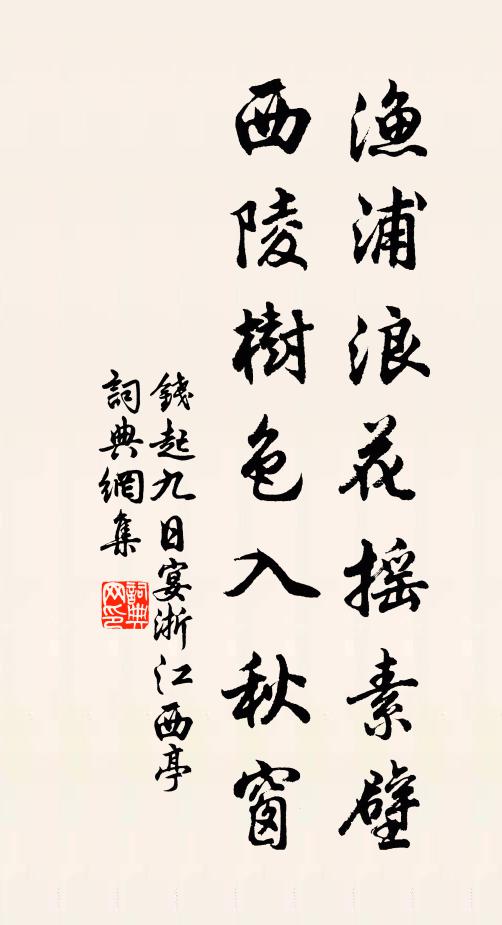 漁浦浪花摇素壁
西陵樹色入秋窗
錢起九日宴浙江西亭
詞典網集
詞典网印